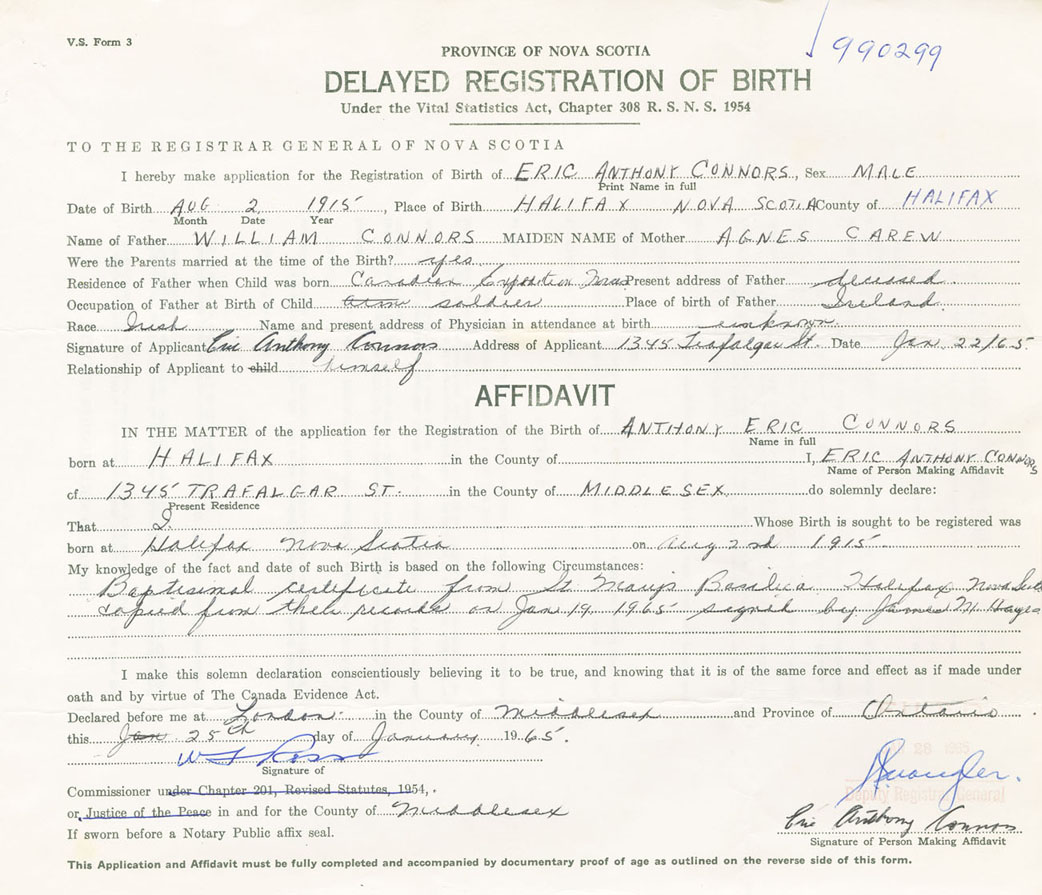 V.S. Form 3
990299
PROVINCE OF NOVA SCOTIA
DELAYED REGISTRATION OF BIRTH
Under the Vital Statistics Act, Chapter 308 R. S. N. S. 1954
TO THE REGISTRAR GENERAL OF NOVA SCOTIA
I hereby make application for the Registration of Birth of ERIC ANTHONY CONNORS, Sex MALE
Print Name in full
Date of Birth AUG 2 1915, Place of Birth HALIFAX NOVA SCOTIA County of HALIFAX
Month Date Year
Name of Father WILLIAM CONNORS MAIDEN NAME of Mother AGNES CAREW
Were the Parents married at the time of the Birth? yes
Residence of Father when Child was born Canadian Present address of Father deceased
Occupation of Father at Birth of Child soldier Place of birth of Father Ireland.
Race Irish Name and present address of Physician in attendance at birth unknown.
Signature of Applicant Eric Anthony Connors Address of Applicant 1345 Trafalgar St. Date Jan 22/65
Relationship of Applicant to child himself
AFFIDAVIT
IN THE MATTER of the application for the Registration of the Birth of ANTHONY ERIC CONNORS
Name in full
born at HALIFAX in the County of I, ERIC ANTHONY CONNORS
Name of Person Making Affidavit
of 1345 TRAFALGAR ST. in the County of MIDDLESEX do solemnly declare:
Present Residence
That I. Whose Birth is sought to be registered was
born at Halifax Nova Scotia on Aug 2nd 1915.
My knowledge of the fact and date of such Birth is based on the following Circumstances:
Baptismal certificate from St Mary's Basilica Halifax Nova
copied from their records on Jan 19, 1965 signed by James M. Hayes
I make this solemn declaration conscientiously believing it to be true, and knowing that it is of the same force and effect as if made under
oath and by virtue of The Canada Evidence Act.
Declared before me at London in the County of Middlesex and Province of Ontario
this Jan 25th day of January 1965.
Signature of
Commissioner under Chapter 201, Revised Statutes, 1954,
or Justice of the Peace in and for the County of Middlesex
Deputy Registrar General
If sworn before a Notary Public affix seal.
Eric Anthony Connors
Signature of Person Making Affidavit
This Application and Affidavit must be fully completed and accompanied by documentary proof of age as outlined on the reverse side of this form.